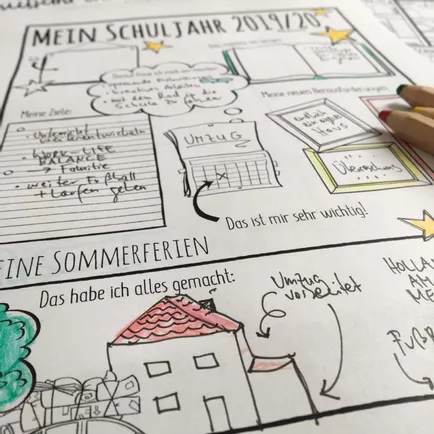 MEIN SCHULJAHR 2019/20
kreatives Arbeiten
mit dem Rad in die
Schule zu fahren
Meine Ziele:
Meine neuen Herausforderungen
WORK-LIFE
BALANCE
→ Familie
weiter Fußball
+ Laufen gehen
UMZUG
Haus
Überraschung
Das ist mir sehr wichtig!
EINE SOMMERFERIEN
Das habe ich alles gemacht:
Umzug
vorbereitet
HOLLA
AM
ME
FUßB